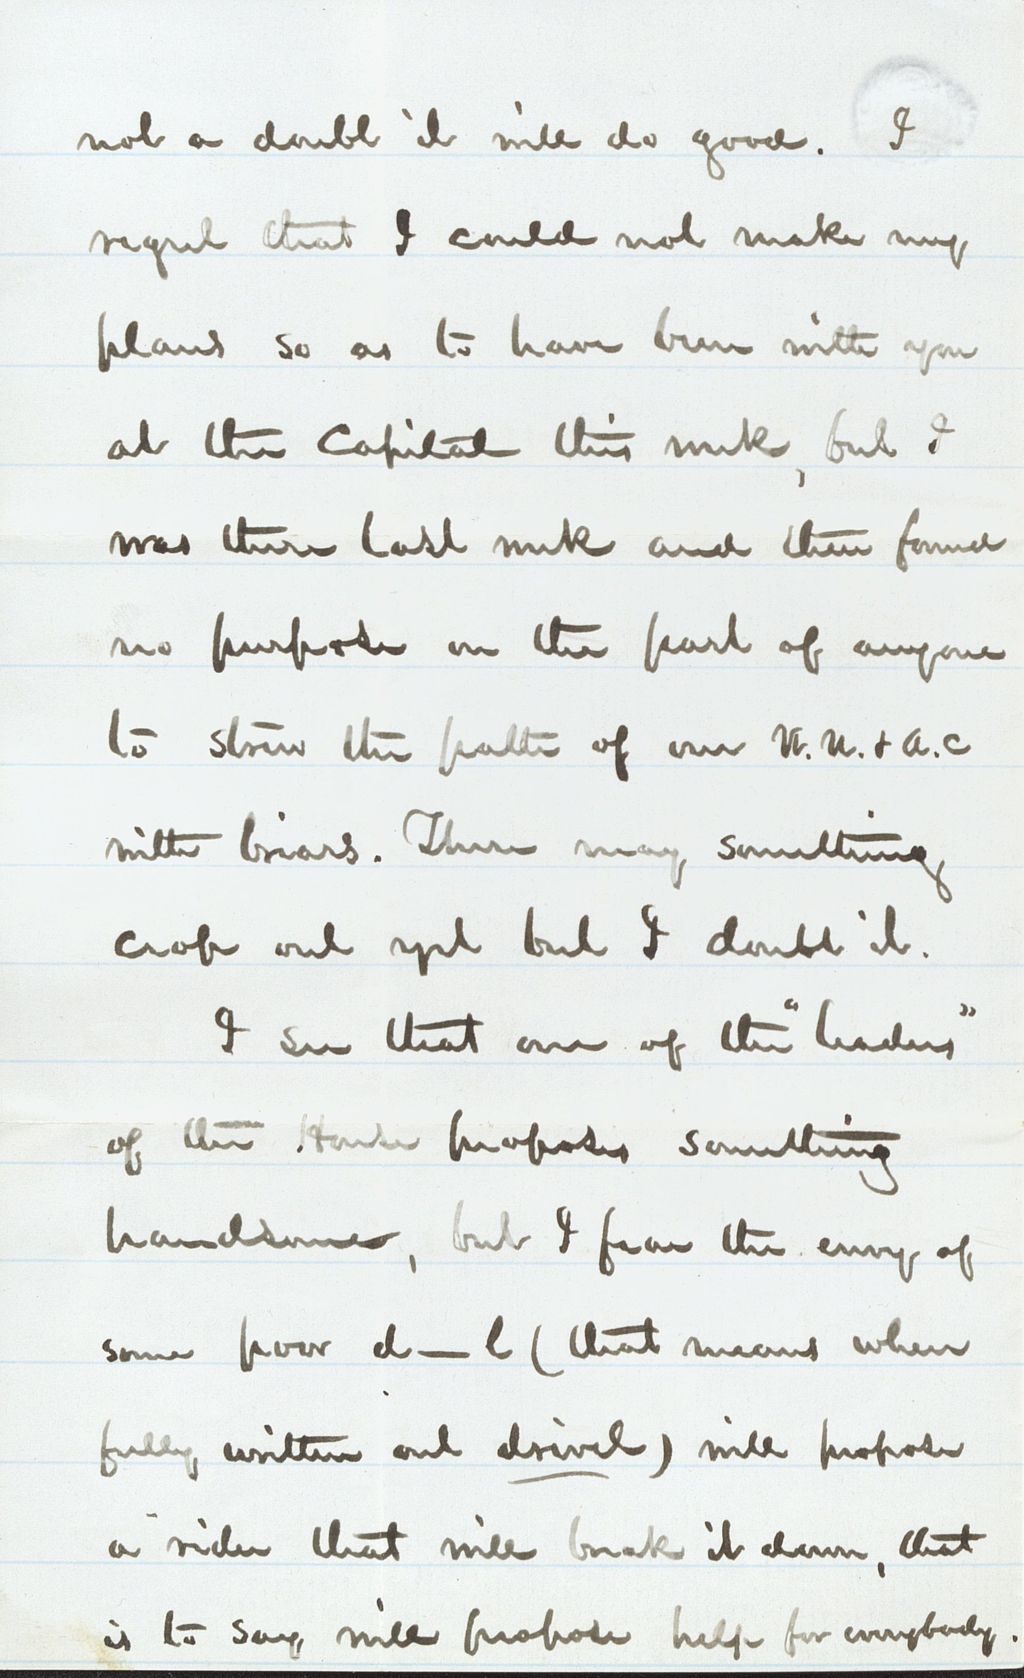 not a doubt it will do good. I
regret that I could not make my
plans so as to have been with you
at the Capital this week, but I
was there last week and then found
no purpose on the part of anyone
to strew the path of our N. N. & A. C
with briars. There may something
crop out yet but I doubt it.
I see that one of the "leaders"
of the House proposes something
handsome, but I fear the envy of
some poor d—l (that means when
fully written out drivel) will propose
a "rider that will break it down, that
is to say will propose help for everybody.